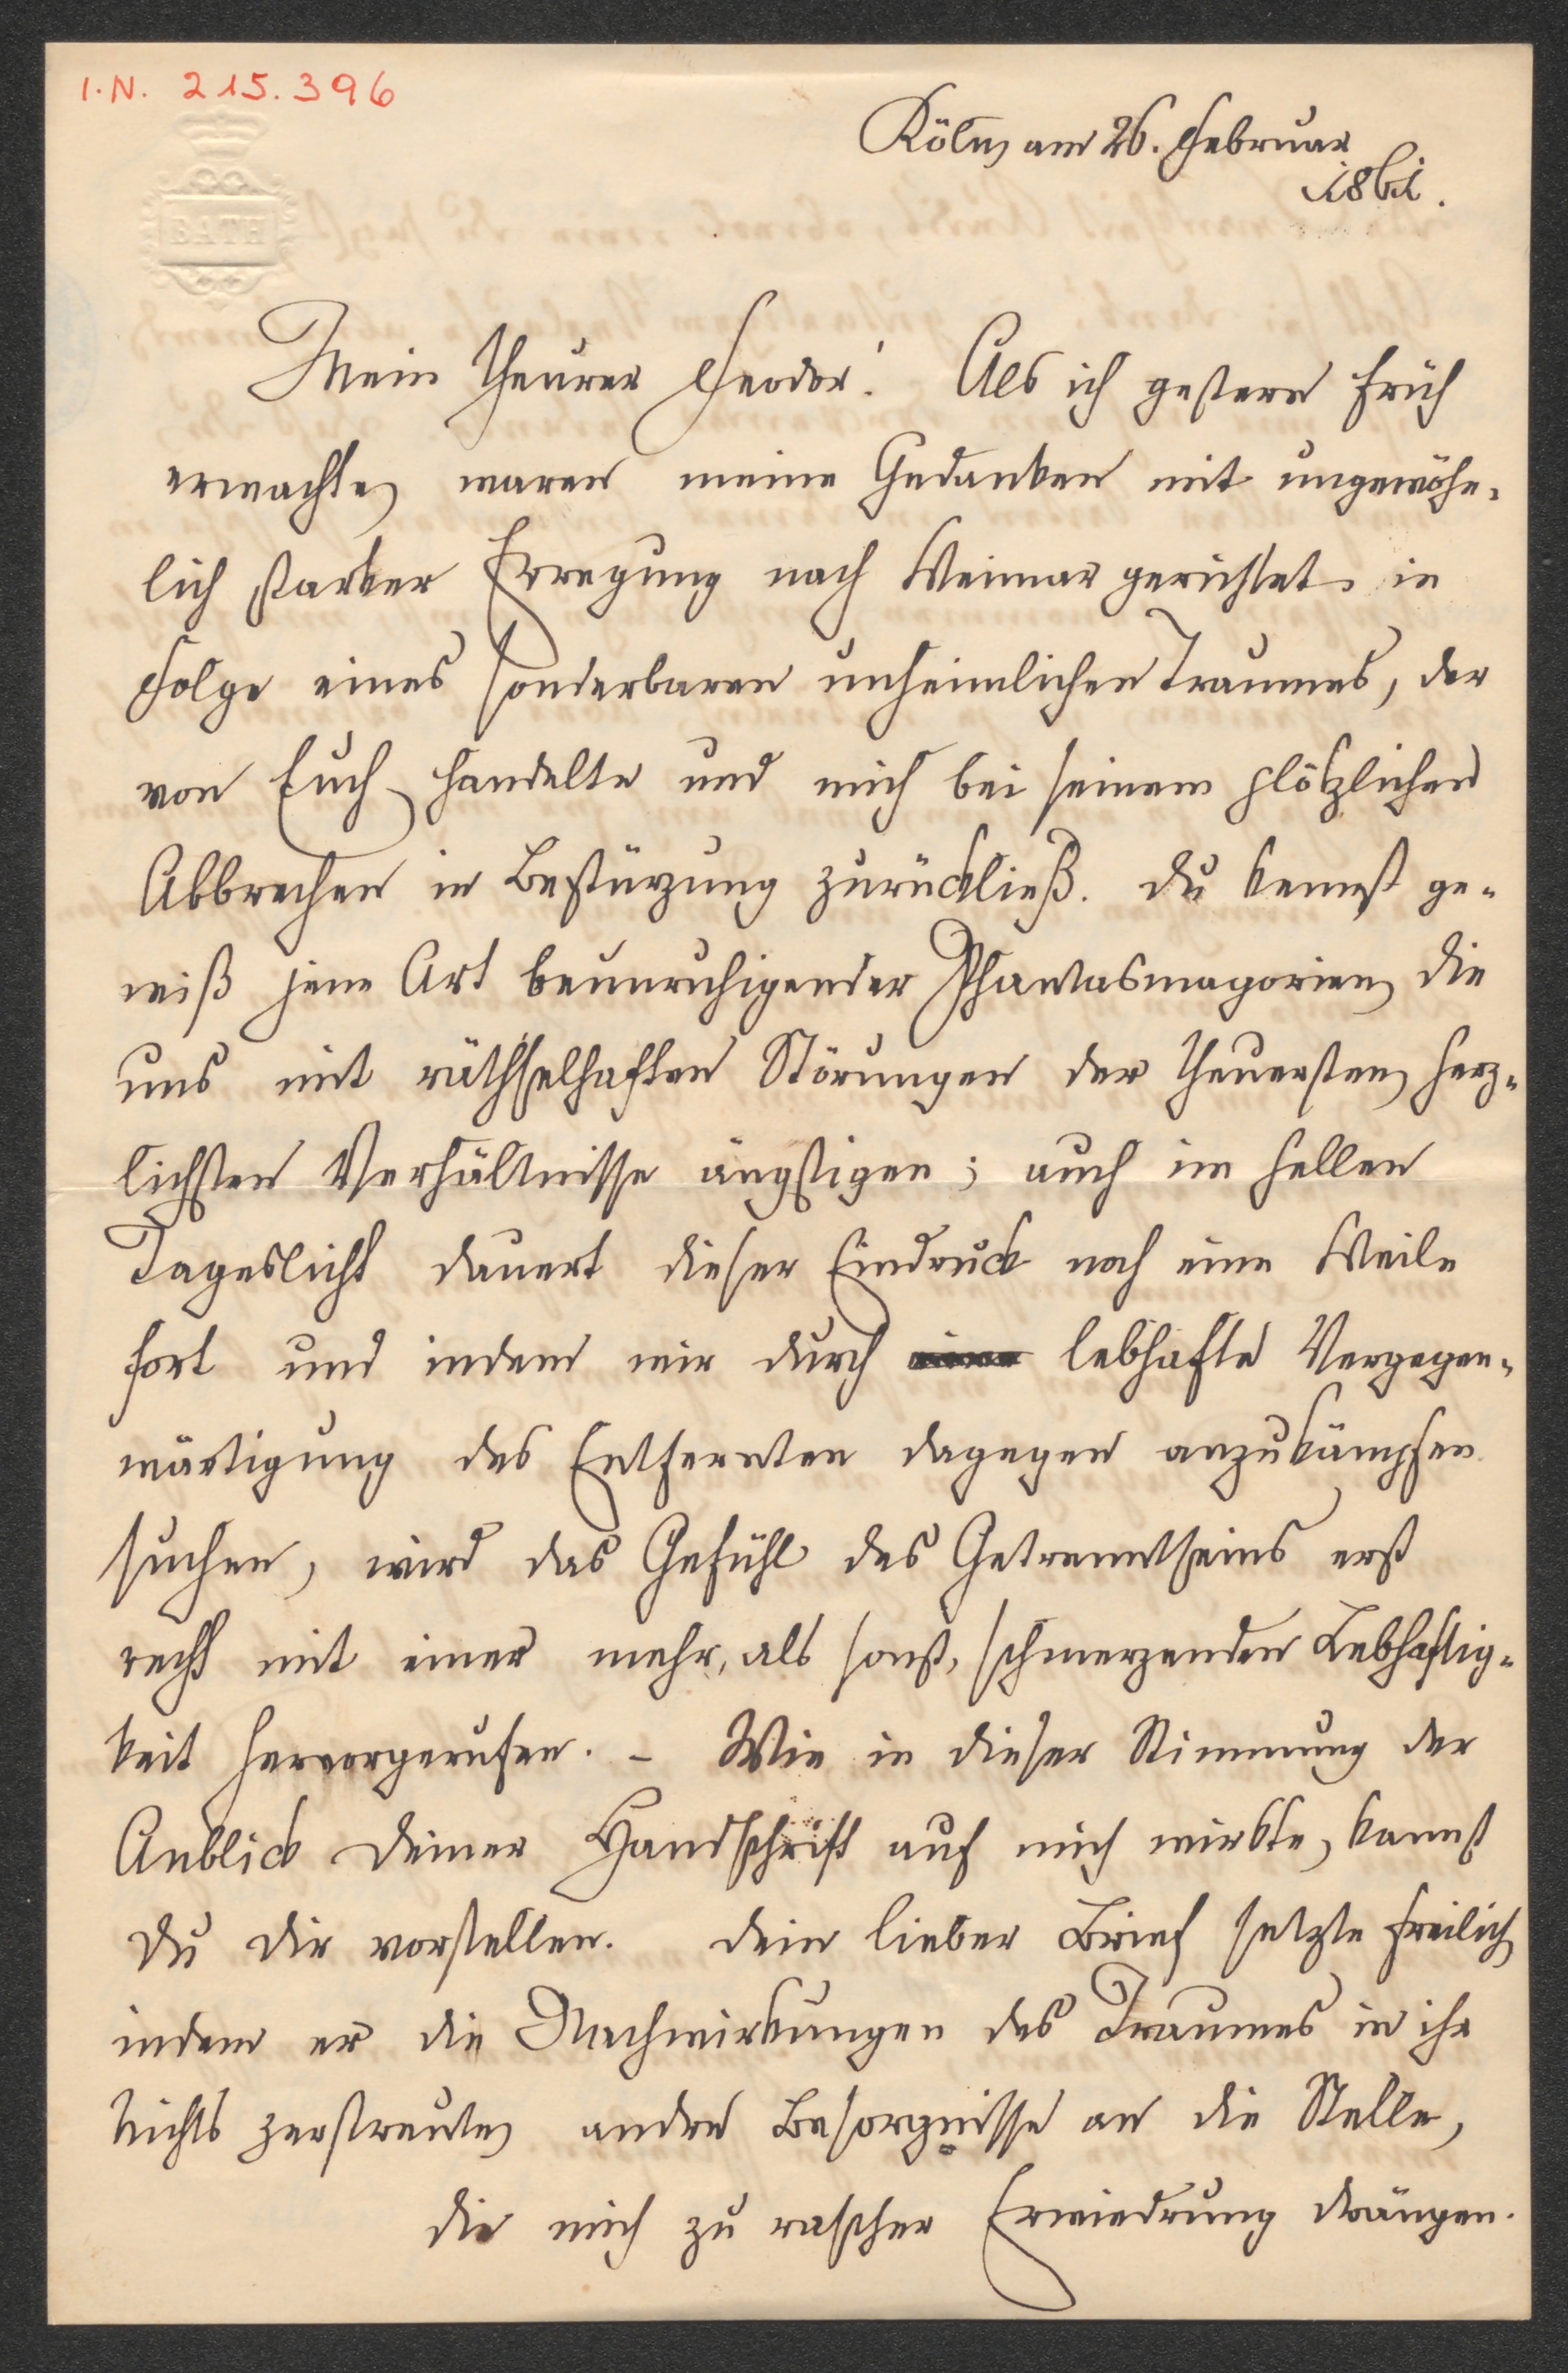 I.N. 215.396
BATH
Köln, am 26. Februar
1861.
Mein theurer Feodor! Als ich gestern früh
erwachte, waren meine Gedanken mit ungewöhn-
lich starker Erregung nach Weimar gerichtet, in
Folge eines sonderbaren unheimlichen Traumes, der
von Euch handelte und mich bei seinem plötzlichen
Abbrechen in Bestürzung zurückließ. Du kennst ge-
wiß jene Art beunruhigender Phantasmagorien, die
uns mit räthselhaften Störungen der theuersten, herz-
lichsten Verhältnisse ängstigen; auch im hellen
Tageslicht dauert dieser Eindruck noch eine Weile
fort und indem wir durch lebhafte Vergegen-
wärtigung des Entfernten dagegen anzukämpfen
suchen, wird das Gefühl des Getrenntseins erst
recht mit einer mehr, als sonst, schmerzenden Lebhaftig-
keit hervorgerufen. – Wie in dieser Stimmung der
Anblick Deiner Handschrift auf mich wirkte, kannst
Du Dir vorstellen. Dein lieber Brief setzte freilich,
indem er die Nachwirkungen des Traumes in ihr
Nichts zerstreute, andre Besorgnisse an die Stelle,
die mich zu rascher Erwiedrung drängen.